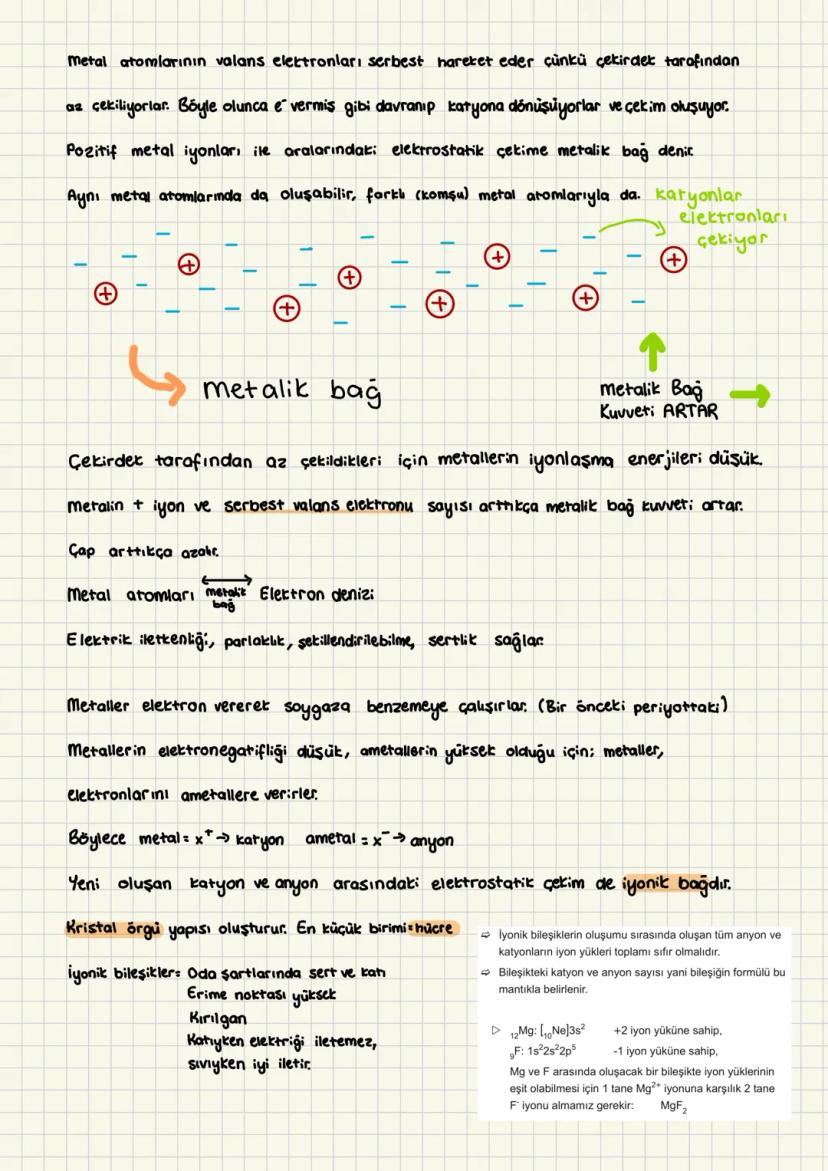 Metal atomlarının valans elektronları serbest hareket eder çünkü çekirdek tarafından
az çekiliyorlar. Böyle olunca e⁻ vermiş gibi davranıp katyona dönüşüyorlar ve çekim oluşuyor.
Pozitif metal iyonları ile aralarındaki elektrostatik çekime metalik bağ denir.
Aynı metal atomlarında da oluşabilir, farklı (komşu) metal atomlarıyla da.
katyonlar
elektronları
çekiyor
metalik bağ
Metalik Bağ
Kuvveti ARTAR
Çekirdek tarafından az çekildikleri için metallerin iyonlaşma enerjileri düşük.
Metalin + iyon ve serbest valans elektronu sayısı arttıkça metalik bağ kuvveti artar.
Çap arttıkça azalır.
Metal atomları ↔ metalik bağ Elektron denizi
Elektrik iletkenliği, parlaklık, şekillendirilebilme, sertlik sağlar.
Metaller elektron vererek soygaza benzemeye çalışırlar. (Bir önceki periyottaki)
Metallerin elektronegatifliği düşük, ametallerin yüksek olduğu için; metaller,
elektronlarını ametallere verirler.
Böylece metal = x⁺ → katyon ametal = x⁻ → anyon
Yeni oluşan katyon ve anyon arasındaki elektrostatik çekim de iyonik bağdır.
Kristal örgü yapısı oluşturur. En küçük birimi = hücre
İyonik bileşikler: Oda şartlarında sert ve katı
Erime noktası yüksek
Kırılgan
Katıyken elektriği iletemez,
sıvıyken iyi iletir.
⇨ İyonik bileşiklerin oluşumu sırasında oluşan tüm anyon ve
katyonların iyon yükleri toplamı sıfır olmalıdır.
⇨ Bileşikteki katyon ve anyon sayısı yani bileşiğin formülü bu
mantıkla belirlenir.
▷ ₁₂Mg: [₁₀Ne]3s² +2 iyon yüküne sahip,
₉F: 1s²2s²2p⁵ -1 iyon yüküne sahip,
Mg ve F arasında oluşacak bir bileşikte iyon yüklerinin
eşit olabilmesi için 1 tane Mg²⁺ iyonuna karşılık 2 tane
F⁻ iyonu almamız gerekir: MgF₂